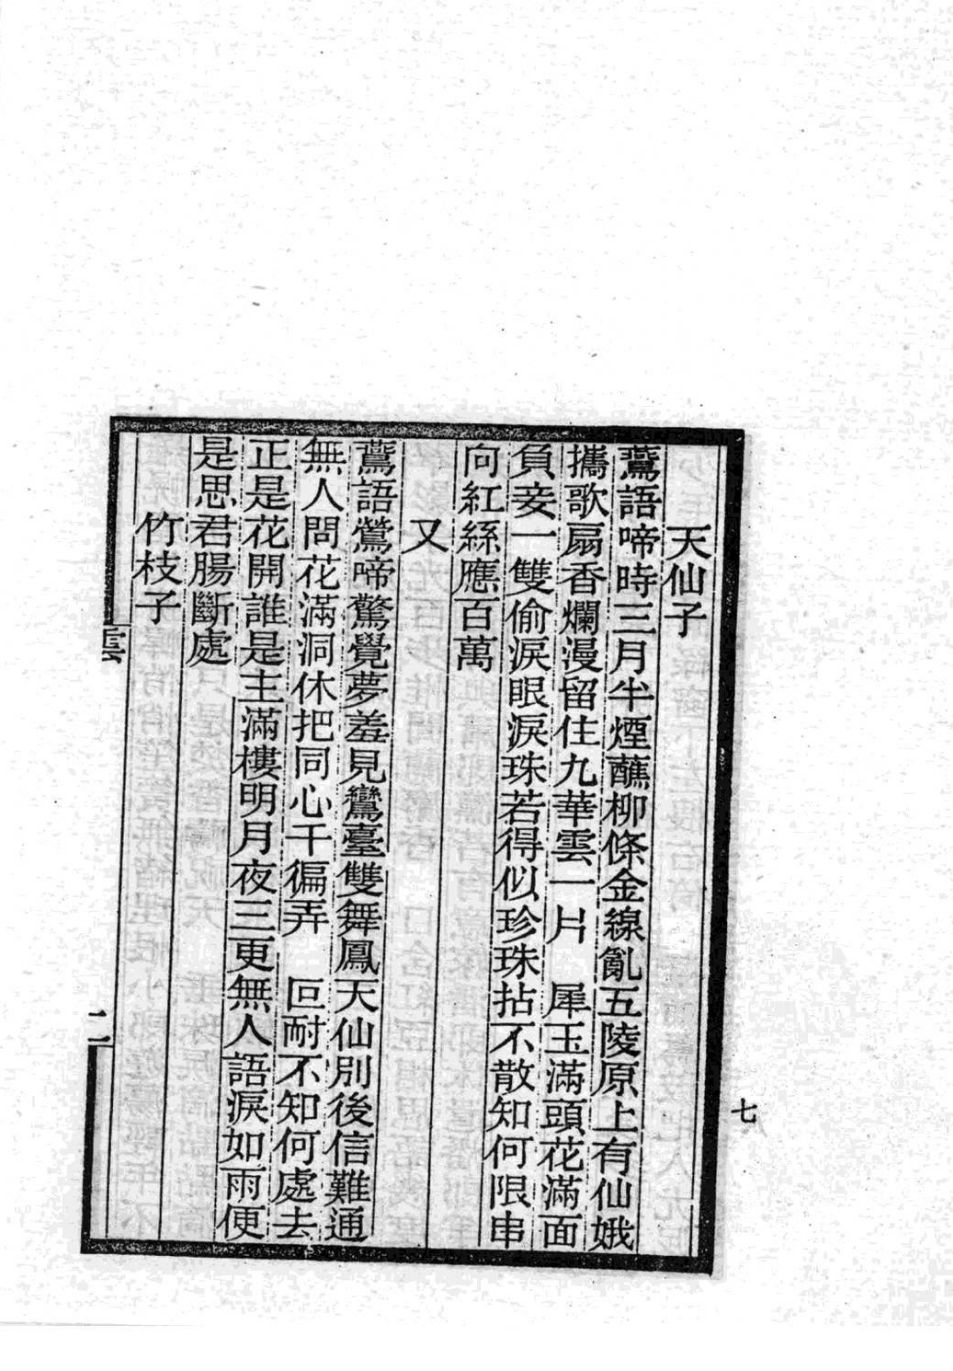 天仙子
鷰語啼時三月半煙蘸柳條金線亂五陵原上有仙娥
攜歌扇香爛漫留住九華雲一片　犀玉滿頭花滿面
負妾一雙偷淚眼淚珠若得似珍珠拈不散知何限串
向紅絲應百萬
又
鷰語鶯啼驚覺夢羞見鸞臺雙舞鳳天仙別後信難通
無人問花滿洞休把同心千徧弄　叵耐不知何處去
正是花開誰是主滿樓明月夜三更無人語淚如雨便
是思君腸斷處
竹枝子
雲
二
七